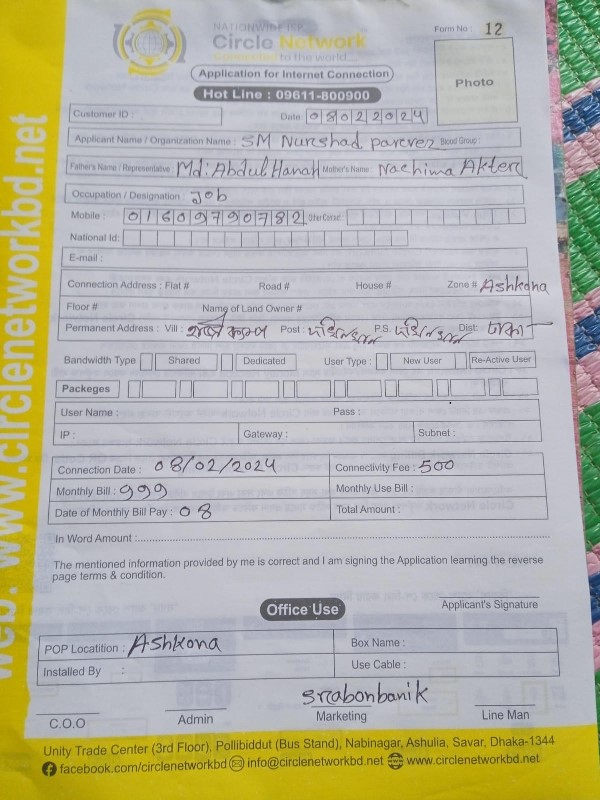 NATIONWIDE ISP
Circle Network
Connected to the world...
Form No : 12
Application for Internet Connection
Hot Line : 09611-800900
Photo
Customer ID :
Date : 08022024
Applicant Name / Organization Name : SM Nureshad parevez Blood Group :
Father's Name / Representative : Md: Abdul Hanan Mother's Name : Nachima Akter
Occupation / Designation : Job
Mobile : 01609790782 Other Contac :
National Id:
E-mail :
Connection Address : Flat # Road # House # Zone # Ashkona
Floor # Name of Land Owner #
Permanent Address : Vill : Post : দক্ষিনখান P.S. দক্ষিনখান Dist: ঢাকা
Bandwidth Type Shared Dedicated User Type : New User Re-Active User
Packeges
User Name : Pass :
IP : Gateway : Subnet :
Connection Date : 08/02/2024 Connectivity Fee : 500
Monthly Bill : 999 Monthly Use Bill :
Date of Monthly Bill Pay : 08 Total Amount :
In Word Amount :
The mentioned information provided by me is correct and I am signing the Application learning the reverse
page terms & condition.
Applicant's Signature
Office Use
POP Locatition : Ashkona Box Name :
Installed By : Use Cable :
srabonbanik
C.O.O Admin Marketing Line Man
Unity Trade Center (3rd Floor), Pollibiddut (Bus Stand), Nabinagar, Ashulia, Savar, Dhaka-1344
facebook.com/circlenetworkbd info@circlenetworkbd.net www.circlenetworkbd.net
web: www.circlenetworkbd.net